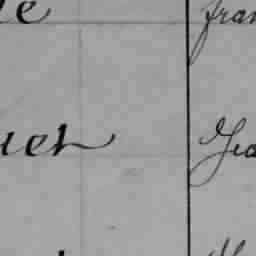 e fran
uet Jea